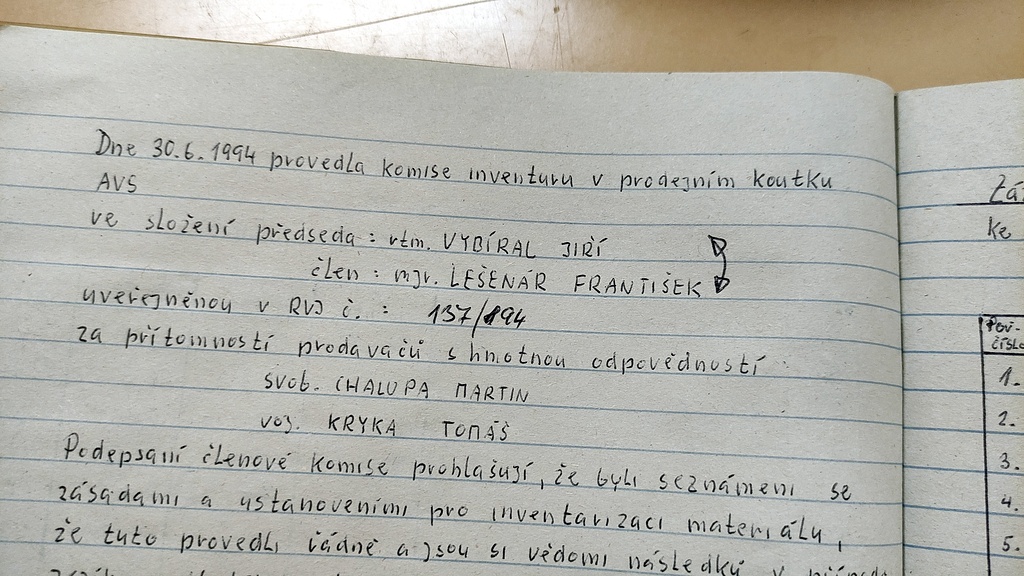 Dne 30.6.1994 provedla komise inventuru v prodejním koutku
AVS
ve složení předseda : rtm. VYBÍRAL JIŘÍ
člen : mjr. LEŠENÁR FRANTIŠEK
uveřejněnou v RVJ č. : 137/94
za přítomností prodavačů s hmotnou odpovědností
svob. CHALUPA MARTIN
voj. KRYKA TOMÁŠ
Podepsaní členové komise prohlašují, že byli seznámeni se
zásadami a ustanoveními pro inventarizaci materiálu,
že tuto provedli řádně a jsou si vědomi následků v
Zá
ke
Poř.
číslo
1.
2.
3.
4.
5.